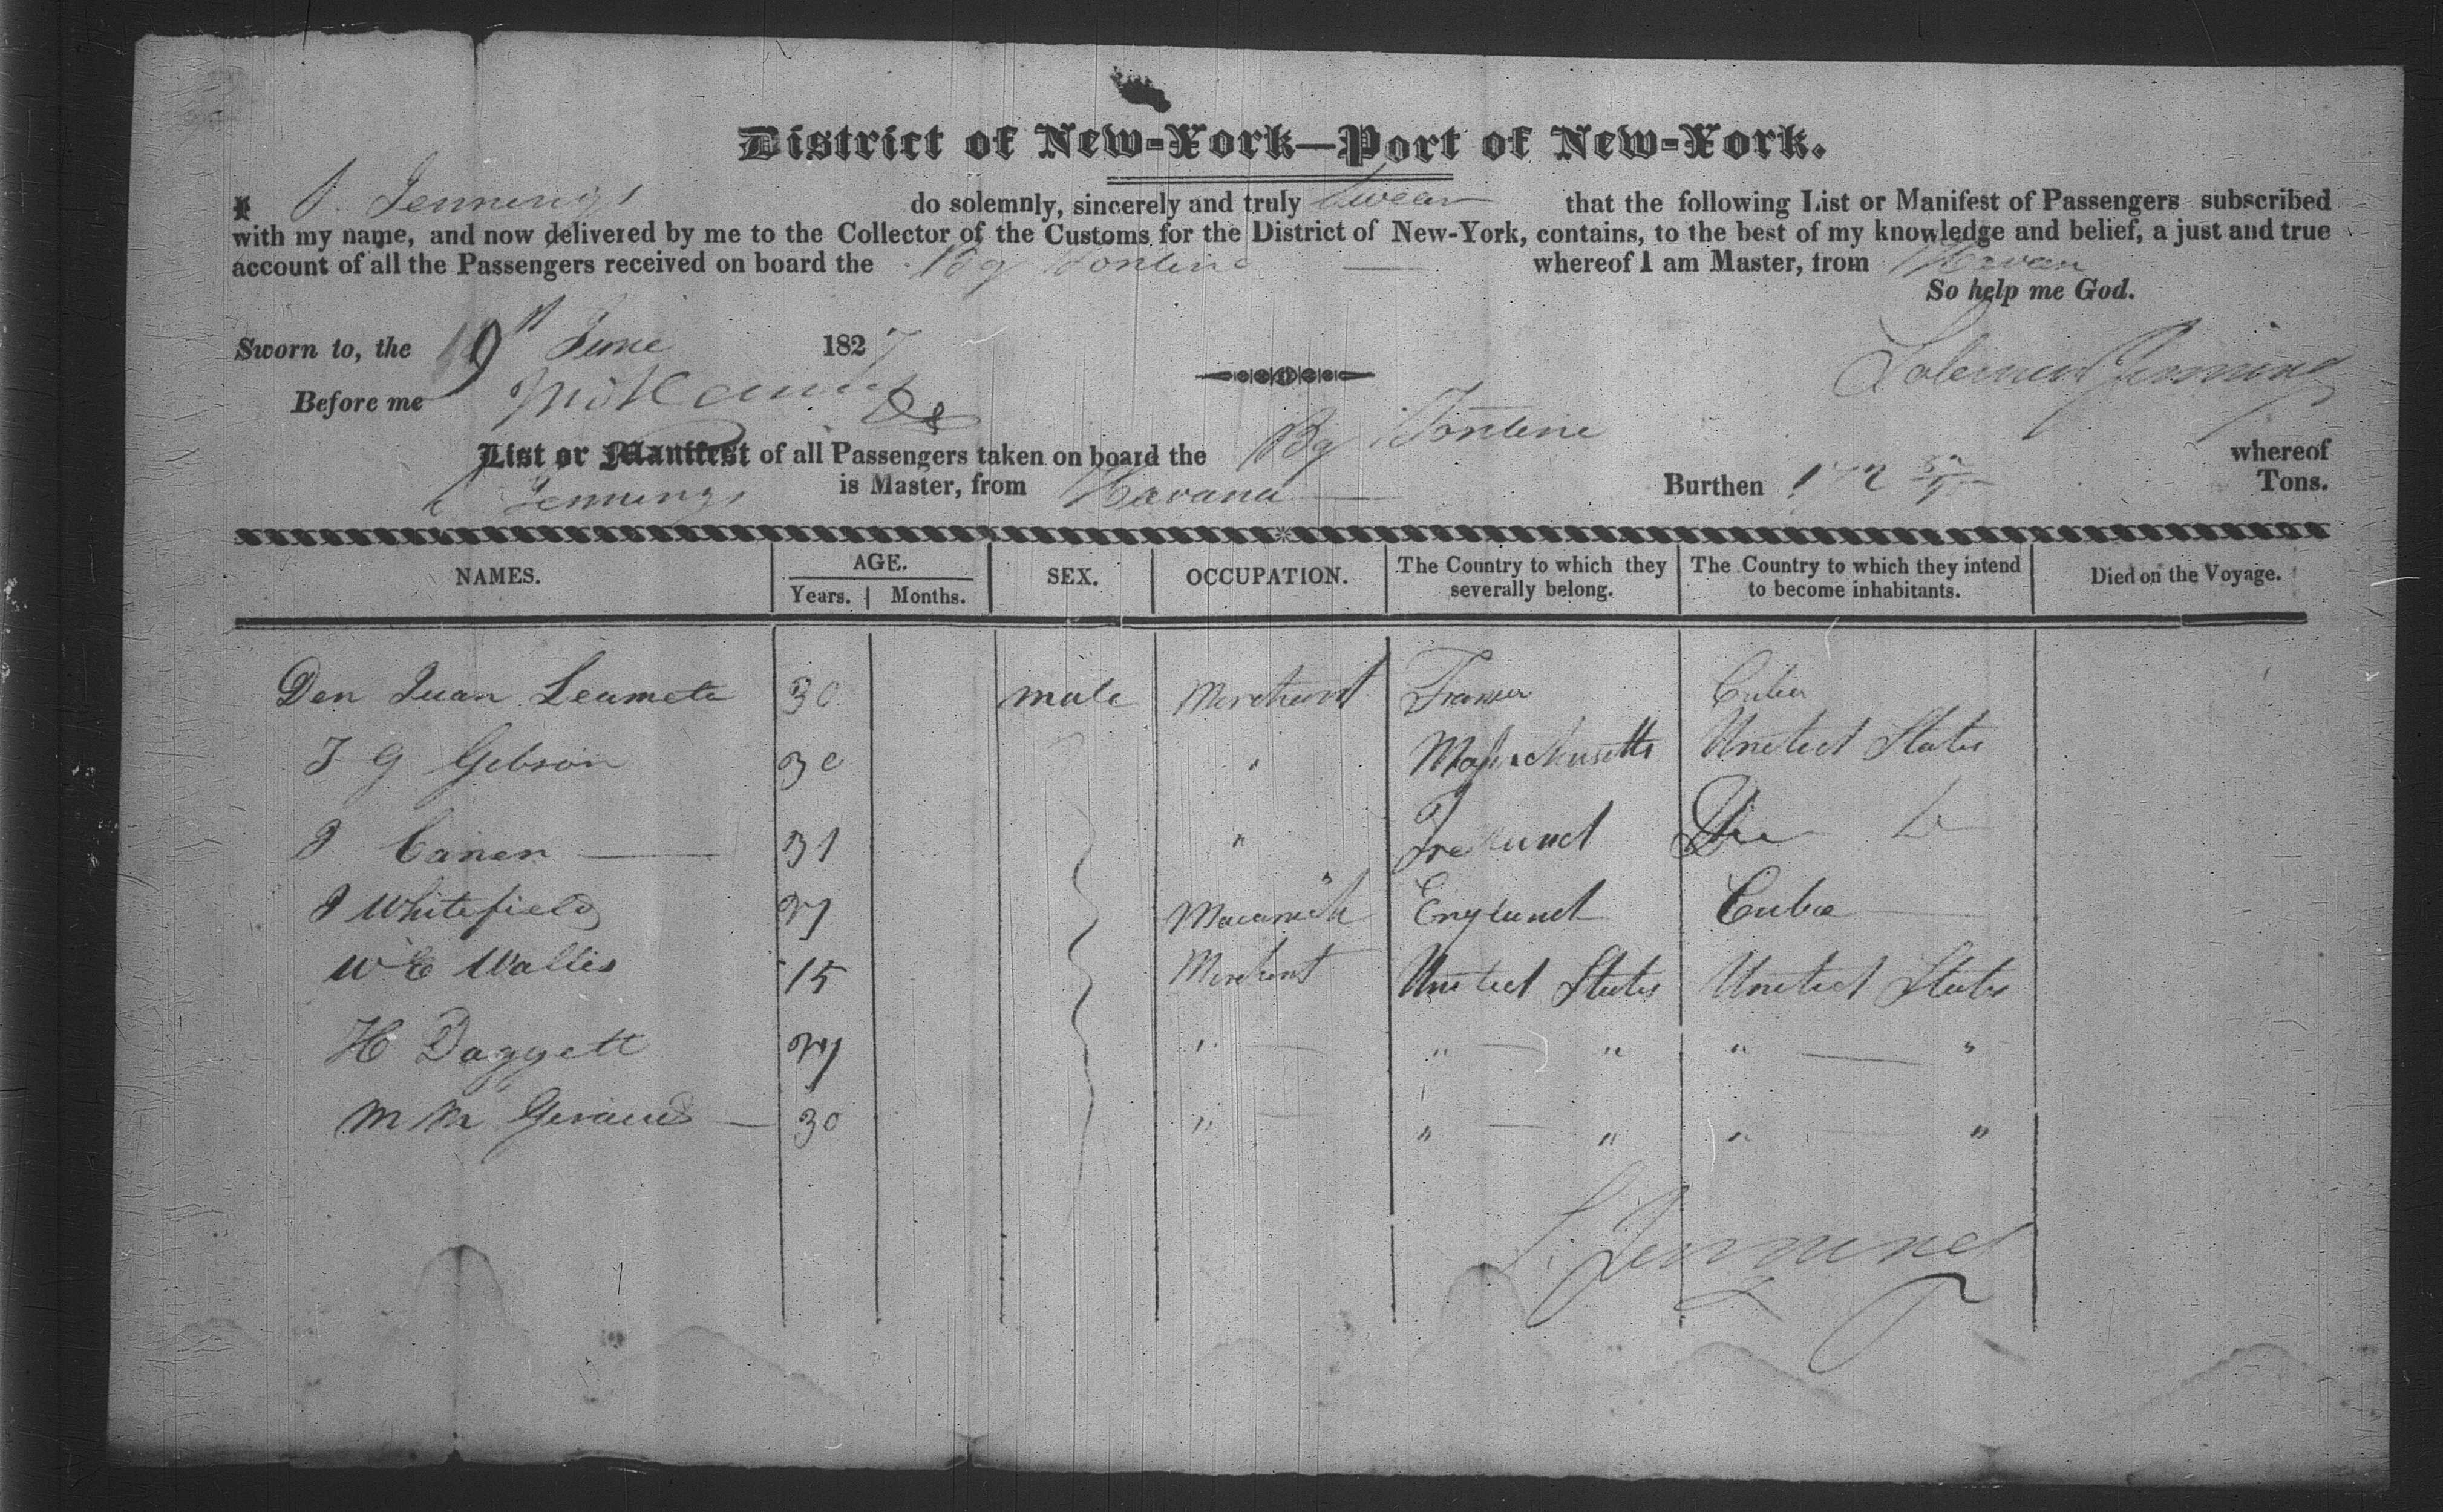 District of New-York—Port of New-York.
I S. Jennings do solemnly, sincerely and truly Swear that the following List or Manifest of Passengers subscribed
with my name, and now delivered by me to the Collector of the Customs for the District of New-York, contains, to the best of my knowledge and belief, a just and true
account of all the Passengers received on board the Bg Tontine — whereof I am Master, from Havan
So help me God.
Sworn to, the June 1827
Before me
Solomon Jennings
List or Manifest of all Passengers taken on board the Bg Tontine whereof
Jennings is Master, from Havana — Burthen 142 Tons.
NAMES. AGE. SEX. OCCUPATION. The Country to which they severally belong. The Country to which they intend to become inhabitants. Died on the Voyage.
Years. Months.
Don Juan 30 male Merchant France Cuba
J G Gibson 30 " Massachusetts United States
J Canen — 31 " Ireland
J Whitefield 27 England Cuba —
W E Wallis 15 Merchant United States United States
H Daggett 27 " — " — " " — "
M M — 30 " — " — " " — "
S. Jennings